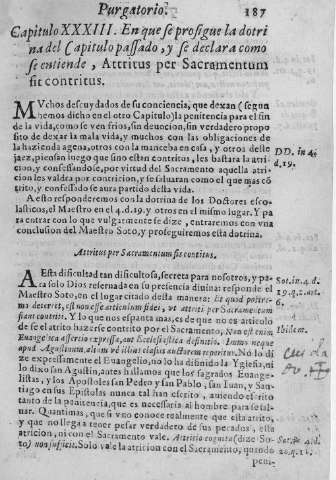 Purgatorio. 187
Capitulo XXXIII. En que se prosigue la dotri
na del Capitulo passado, y se declara como
se entiende, Attritus per Sacramentum
fit contritus.
MVchos descuydados de su conciencia, que dexan (segun
hemos dicho en el otro Capitulo) la penitencia para el fin
de la vida, como se ven frios, sin deuocion, sin verdadero propo
sito de dexar la mala vida, y muchos con las obligaciones de
la hazienda agena, otros con la manceba en casa, y otros deste
jaez, piensan luego que sino estan contritos, les bastara la atri-
cion, y confessandose, por virtud del Sacramento aquella atri-
cion les valdra por contricion, y se saluaran como el que mas cō
trito, y confessado se aura partido desta vida.
DD. in 4.
d.19.
A esto responderemos con la dotrina de los Doctores esco-
lasticos, el Maestro en el 4.d.19. y otros en el mismo lugar. Y pa
ra entrar con lo que vulgarmente se dize, entraremos con vna
conclusion del Maestro Soto, y proseguiremos esta dotrina.
Attritus per Sacramentum fit contritus.
A Esta dificultad tan dificultosa, secreta para nosotros, y pa-
ra solo Dios reseruada en su presencia diuina: responde el
Maestro Soto, en el lugar citado desta manera: Et quod pœnite-
ns detritis, est non esse articulum fidei, vt attriti per Sacramentum
fiant contriti. Y lo que nos espanta mas, es de que no es articulo
de se el atrito hazerse contrito por el Sacramento, Non est enim
Euangelica assertio expressa, aut Ecclesiastica definitio. Immo neque
apud Augustinum, alium vè illius classis authorem reperitur. No lo di
ze expressamente el Euangelio, no lo ha difinido la Yglesia, ni
lo dixo san Agustin, antes hallamos que los sagrados Euange-
listas, y los Apostoles san Pedro y san Pablo, san Iuan, y San-
tiago en sus Epistolas nunca tal han escrito, auiendo escrito
tanto de la penitencia, que es necessaria al hombre para se sal-
uar. Quantimas, que si vno conoce realmente que esta atrito,
y que no llega a tener pesar verdadero de sus pecados, esta
atricion, ni con el Sacramento vale. Attritio cognita (dize So-
to) non sufficit. Solo vale la atricion con el Sacramento, quando
Sot. in 4. d.
19. q.2. art.
6.
Ibidem.
Sot. in 4. d.
20. q.1.
peni-